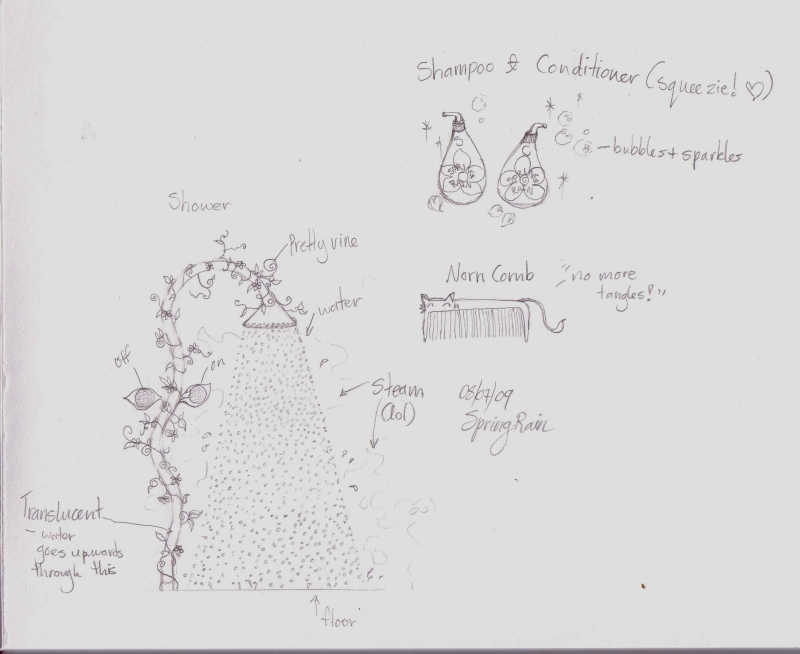 Shampoo & Conditioner (squeezie! ♡)
bubbles + sparkles
SPRING
RAIN
SPRING
RAIN
Shower
Pretty vine
water
Norn Comb
"no more
tangles!"
off
on
Steam
(lol)
08/07/09
SpringRain
Translucent
- water
goes upwards
through this
floor